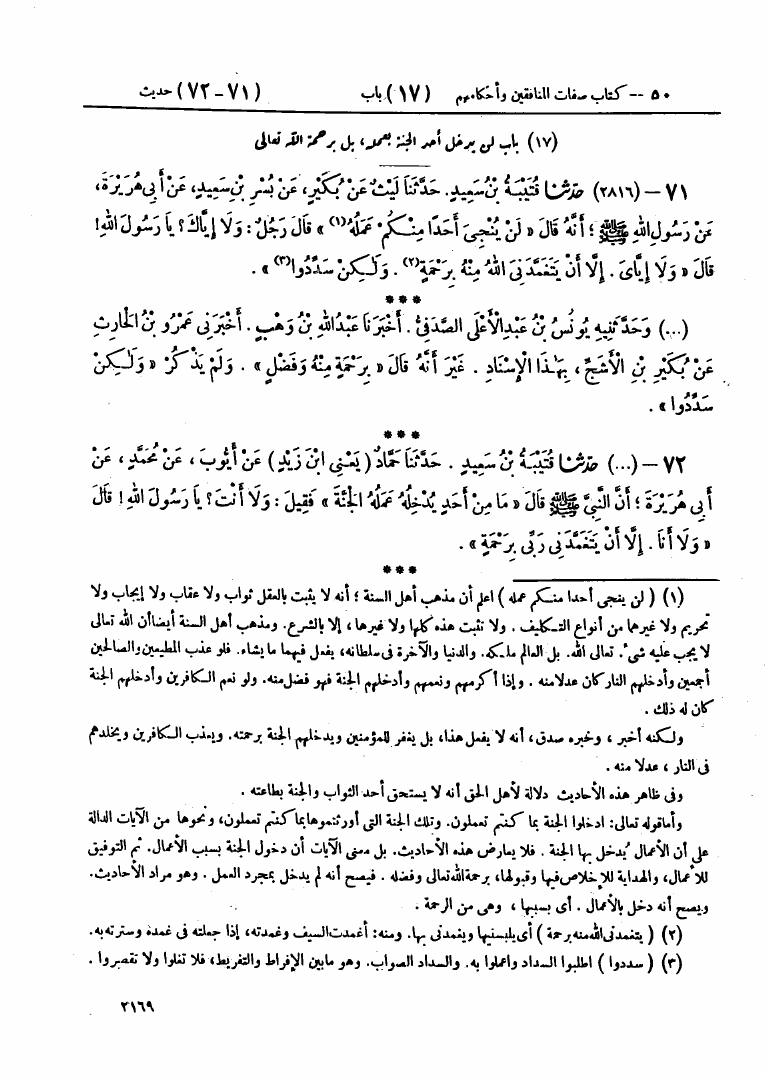 ٥٠ -- كتاب صفات المنافقين وأحكامهم (١٧) باب (٧١-٧٢) حديث
(١٧) باب لن يدخل أحد الجنة بعمله، بل برحمة الله تعالى
٧١ – (٢٨١٦) حَدَّثَنَا قُتَيْبَةُ بْنُ سَعِيدٍ. حَدَّثَنَا لَيْثٌ عَنْ بُكَيْرٍ، عَنْ بُسْرِ بْنِ سَعِيدٍ، عَنْ أَبِي هُرَيْرَةَ،
عَنْ رَسُولِ اللهِ ﷺ؛ أَنَّهُ قَالَ « لَنْ يُنْجِيَ أَحَدًا مِنْكُمْ عَمَلُهُ(١) » قَالَ رَجُلٌ: وَلَا إِيَّاكَ؟ يَا رَسُولَ اللهِ!
قَالَ « وَلَا إِيَّايَ. إِلَّا أَنْ يَتَغَمَّدَنِيَ اللهُ مِنْهُ بِرَحْمَةٍ(٢). وَلَٰكِنْ سَدِّدُوا(٣) ».
***
(...) وَحَدَّثَنِيهِ يُونُسُ بْنُ عَبْدِ الْأَعْلَى الصَّدَفِيُّ. أَخْبَرَنَا عَبْدُ اللهِ بْنُ وَهْبٍ. أَخْبَرَنِي عَمْرُو بْنُ الْحَارِثِ
عَنْ بُكَيْرِ بْنِ الْأَشَجِّ، بِهَٰذَا الْإِسْنَادِ. غَيْرَ أَنَّهُ قَالَ « بِرَحْمَةٍ مِنْهُ وَفَضْلٍ ». وَلَمْ يَذْكُرْ « وَلَٰكِنْ
سَدِّدُوا ».
***
٧٢ – (...) حَدَّثَنَا قُتَيْبَةُ بْنُ سَعِيدٍ. حَدَّثَنَا حَمَّادٌ (يَعْنِي ابْنَ زَيْدٍ) عَنْ أَيُّوبَ، عَنْ مُحَمَّدٍ، عَنْ
أَبِي هُرَيْرَةَ؛ أَنَّ النَّبِيَّ ﷺ قَالَ « مَا مِنْ أَحَدٍ يُدْخِلُهُ عَمَلُهُ الْجَنَّةَ » فَقِيلَ: وَلَا أَنْتَ؟ يَا رَسُولَ اللهِ! قَالَ
« وَلَا أَنَا. إِلَّا أَنْ يَتَغَمَّدَنِي رَبِّي بِرَحْمَةٍ ».
***
(١) (لن ينجى أحدا منكم عمله) اعلم أن مذهب أهل السنة؛ أنه لا يثبت بالعقل ثواب ولا عقاب ولا إيجاب ولا
تحريم ولا غيرها من أنواع التكليف. ولا تثبت هذه كلها ولا غيرها، إلا بالشرع. ومذهب أهل السنة أيضا أن الله تعالى
لا يجب عليه شىء. تعالى الله. بل العالم ملكه. والدنيا والآخرة فى سلطانه، يفعل فيهما ما يشاء. فلو عذب المطيعين والصالحين
أجمعين وأدخلهم النار كان عدلا منه. وإذا أكرمهم ونعمهم وأدخلهم الجنة فهو فضل منه. ولو نعم الكافرين وأدخلهم الجنة
كان له ذلك.
ولكنه أخبر، وخبره صدق، أنه لا يفعل هذا، بل يغفر للمؤمنين ويدخلهم الجنة برحمته. ويعذب الكافرين ويخلدهم
فى النار، عدلا منه.
وفى ظاهر هذه الأحاديث دلالة لأهل الحق أنه لا يستحق أحد الثواب والجنة بطاعته.
وأما قوله تعالى: ادخلوا الجنة بما كنتم تعملون. وتلك الجنة التى أورثتموها بما كنتم تعملون، ونحوها من الآيات الدالة
على أن الأعمال يُدخل بها الجنة. فلا يعارض هذه الأحاديث. بل معنى الآيات أن دخول الجنة بسبب الأعمال. ثم التوفيق
للأعمال، والهداية للإخلاص فيها وقبولها، برحمة الله تعالى وفضله. فيصح أنه لم يدخل بمجرد العمل. وهو مراد الأحاديث.
ويصح أنه دخل بالأعمال. أى بسببها، وهى من الرحمة.
(٢) (يتغمدنى الله منه برحمة) أى يلبسنيها ويغمدنى بها. ومنه: أغمدت السيف وغمدته، إذا جعلته فى غمده وسترته به.
(٣) (سددوا) اطلبوا السداد واعملوا به. والسداد الصواب. وهو ما بين الإفراط والتفريط، فلا تغلوا ولا تقصروا.
٢١٦٩